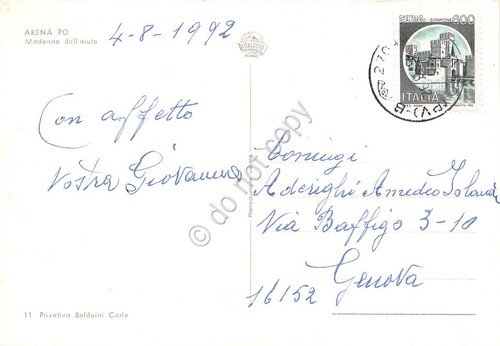 ARENA PO
Madonna dell'aiuto
4-8-1992
Con affetto
Vostra Giovanna
Coniugi
Aderighi Amedeo Iolanda
Via Baffigo 3-10
Genova
16152
11 Privativa Balduini Carlo
CASTELLO SIRMIONE 800
ITALIA
(PV)-B
do not copy